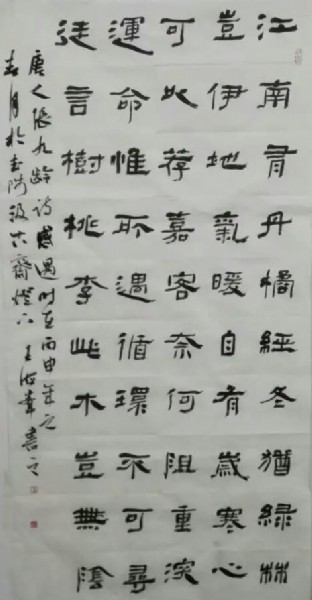 江南有丹橘經冬猶綠林
豈伊地氣暖自有歲寒心
可以荐嘉客奈何阻重深
運命惟所遇循環不可尋
徒言樹桃李此木豈無陰
唐人張九齡詩感遇时在丙申年之
春月於汲古齋燈下王書之